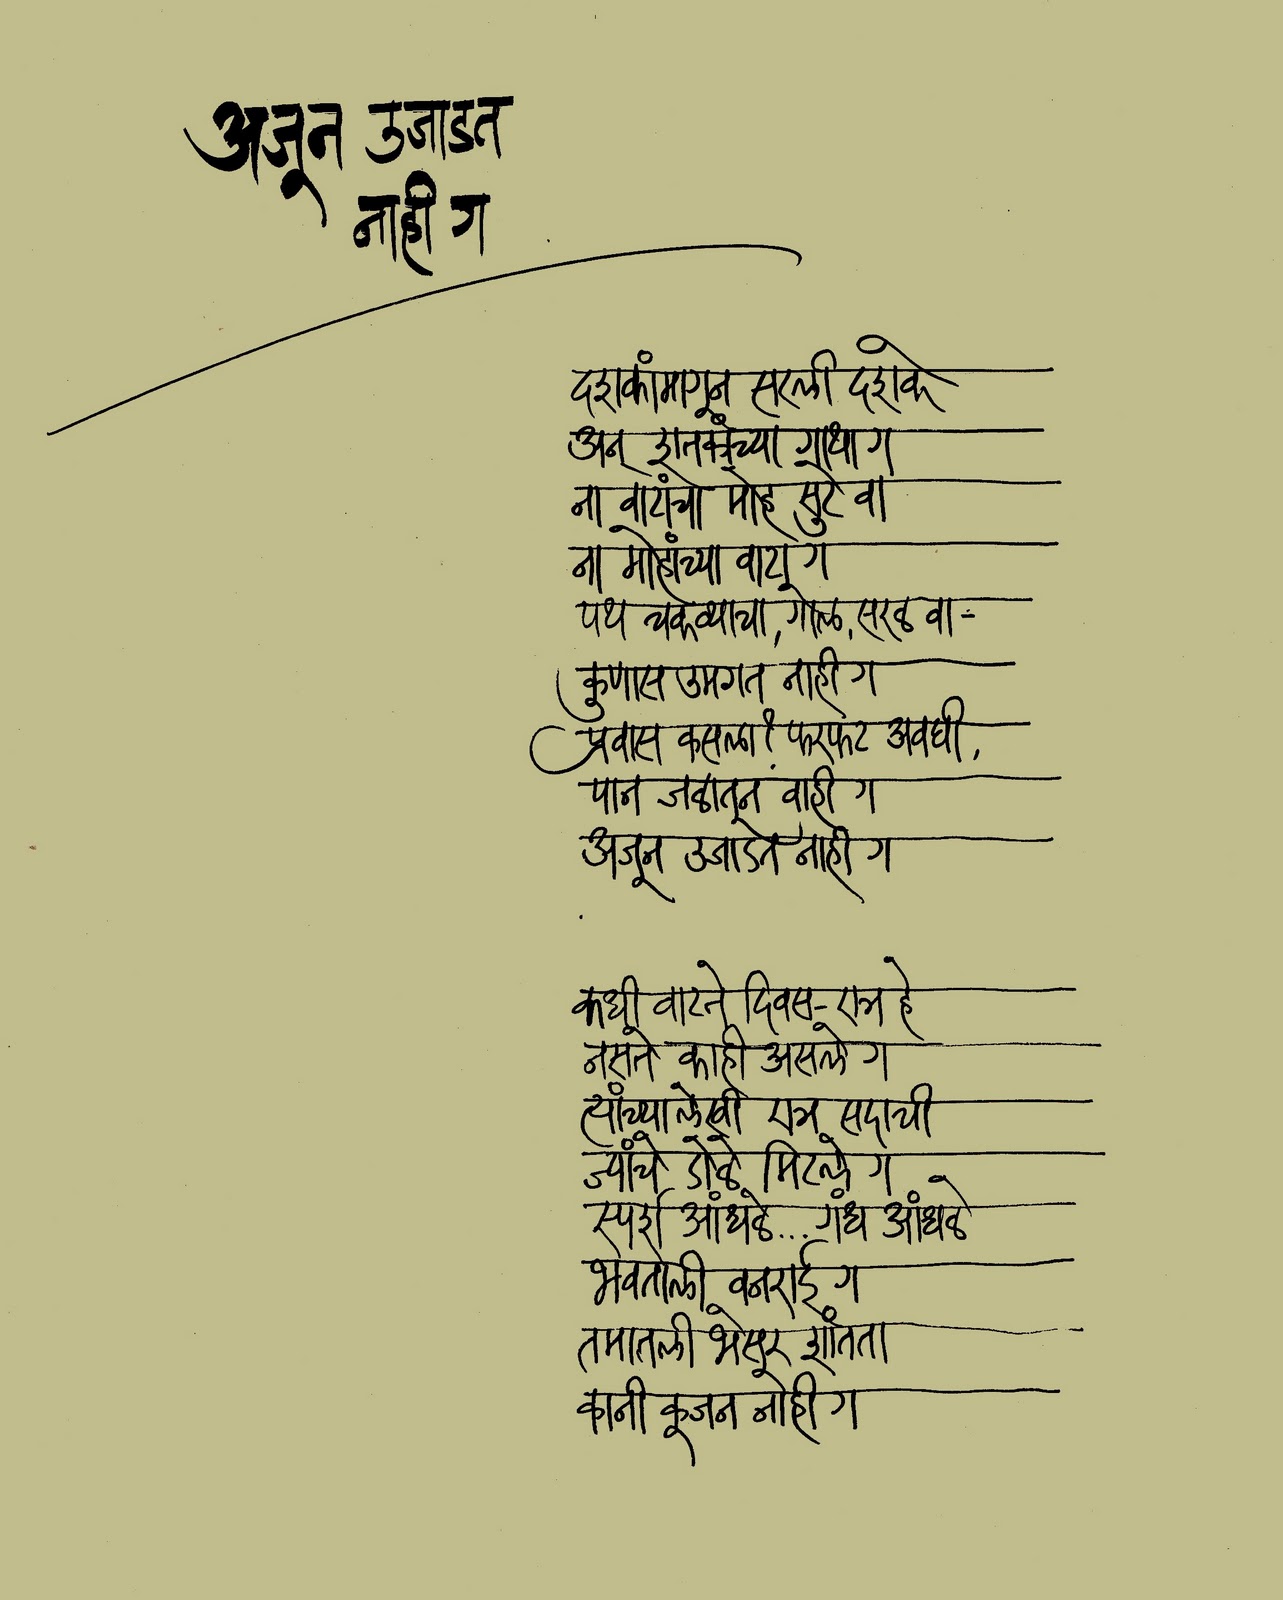 अजून उजाडत
नाही ग
दशकांमागून सरली दशके
अन् शतकांच्या गाथा ग
ना वाटांचा मोह सुटे वा
ना मोहांच्या वाटा ग
पथ चकव्याचा, गोल, सरळ वा -
कुणास उमगत नाही ग
प्रवास कसला? फरफट अवघी,
पान जळातून वाही ग
अजून उजाडत नाही ग
कधी वाटते दिवस-रात्र हे
नसते काही असले ग
त्यांच्यालेखी रात्र सदाची
ज्यांचे डोळे मिटले ग
स्पर्श आंधळे... गंध आंधळे
भवताली वनराई ग
तमातली भेसूर शांतता
कानी कूजन नाही ग